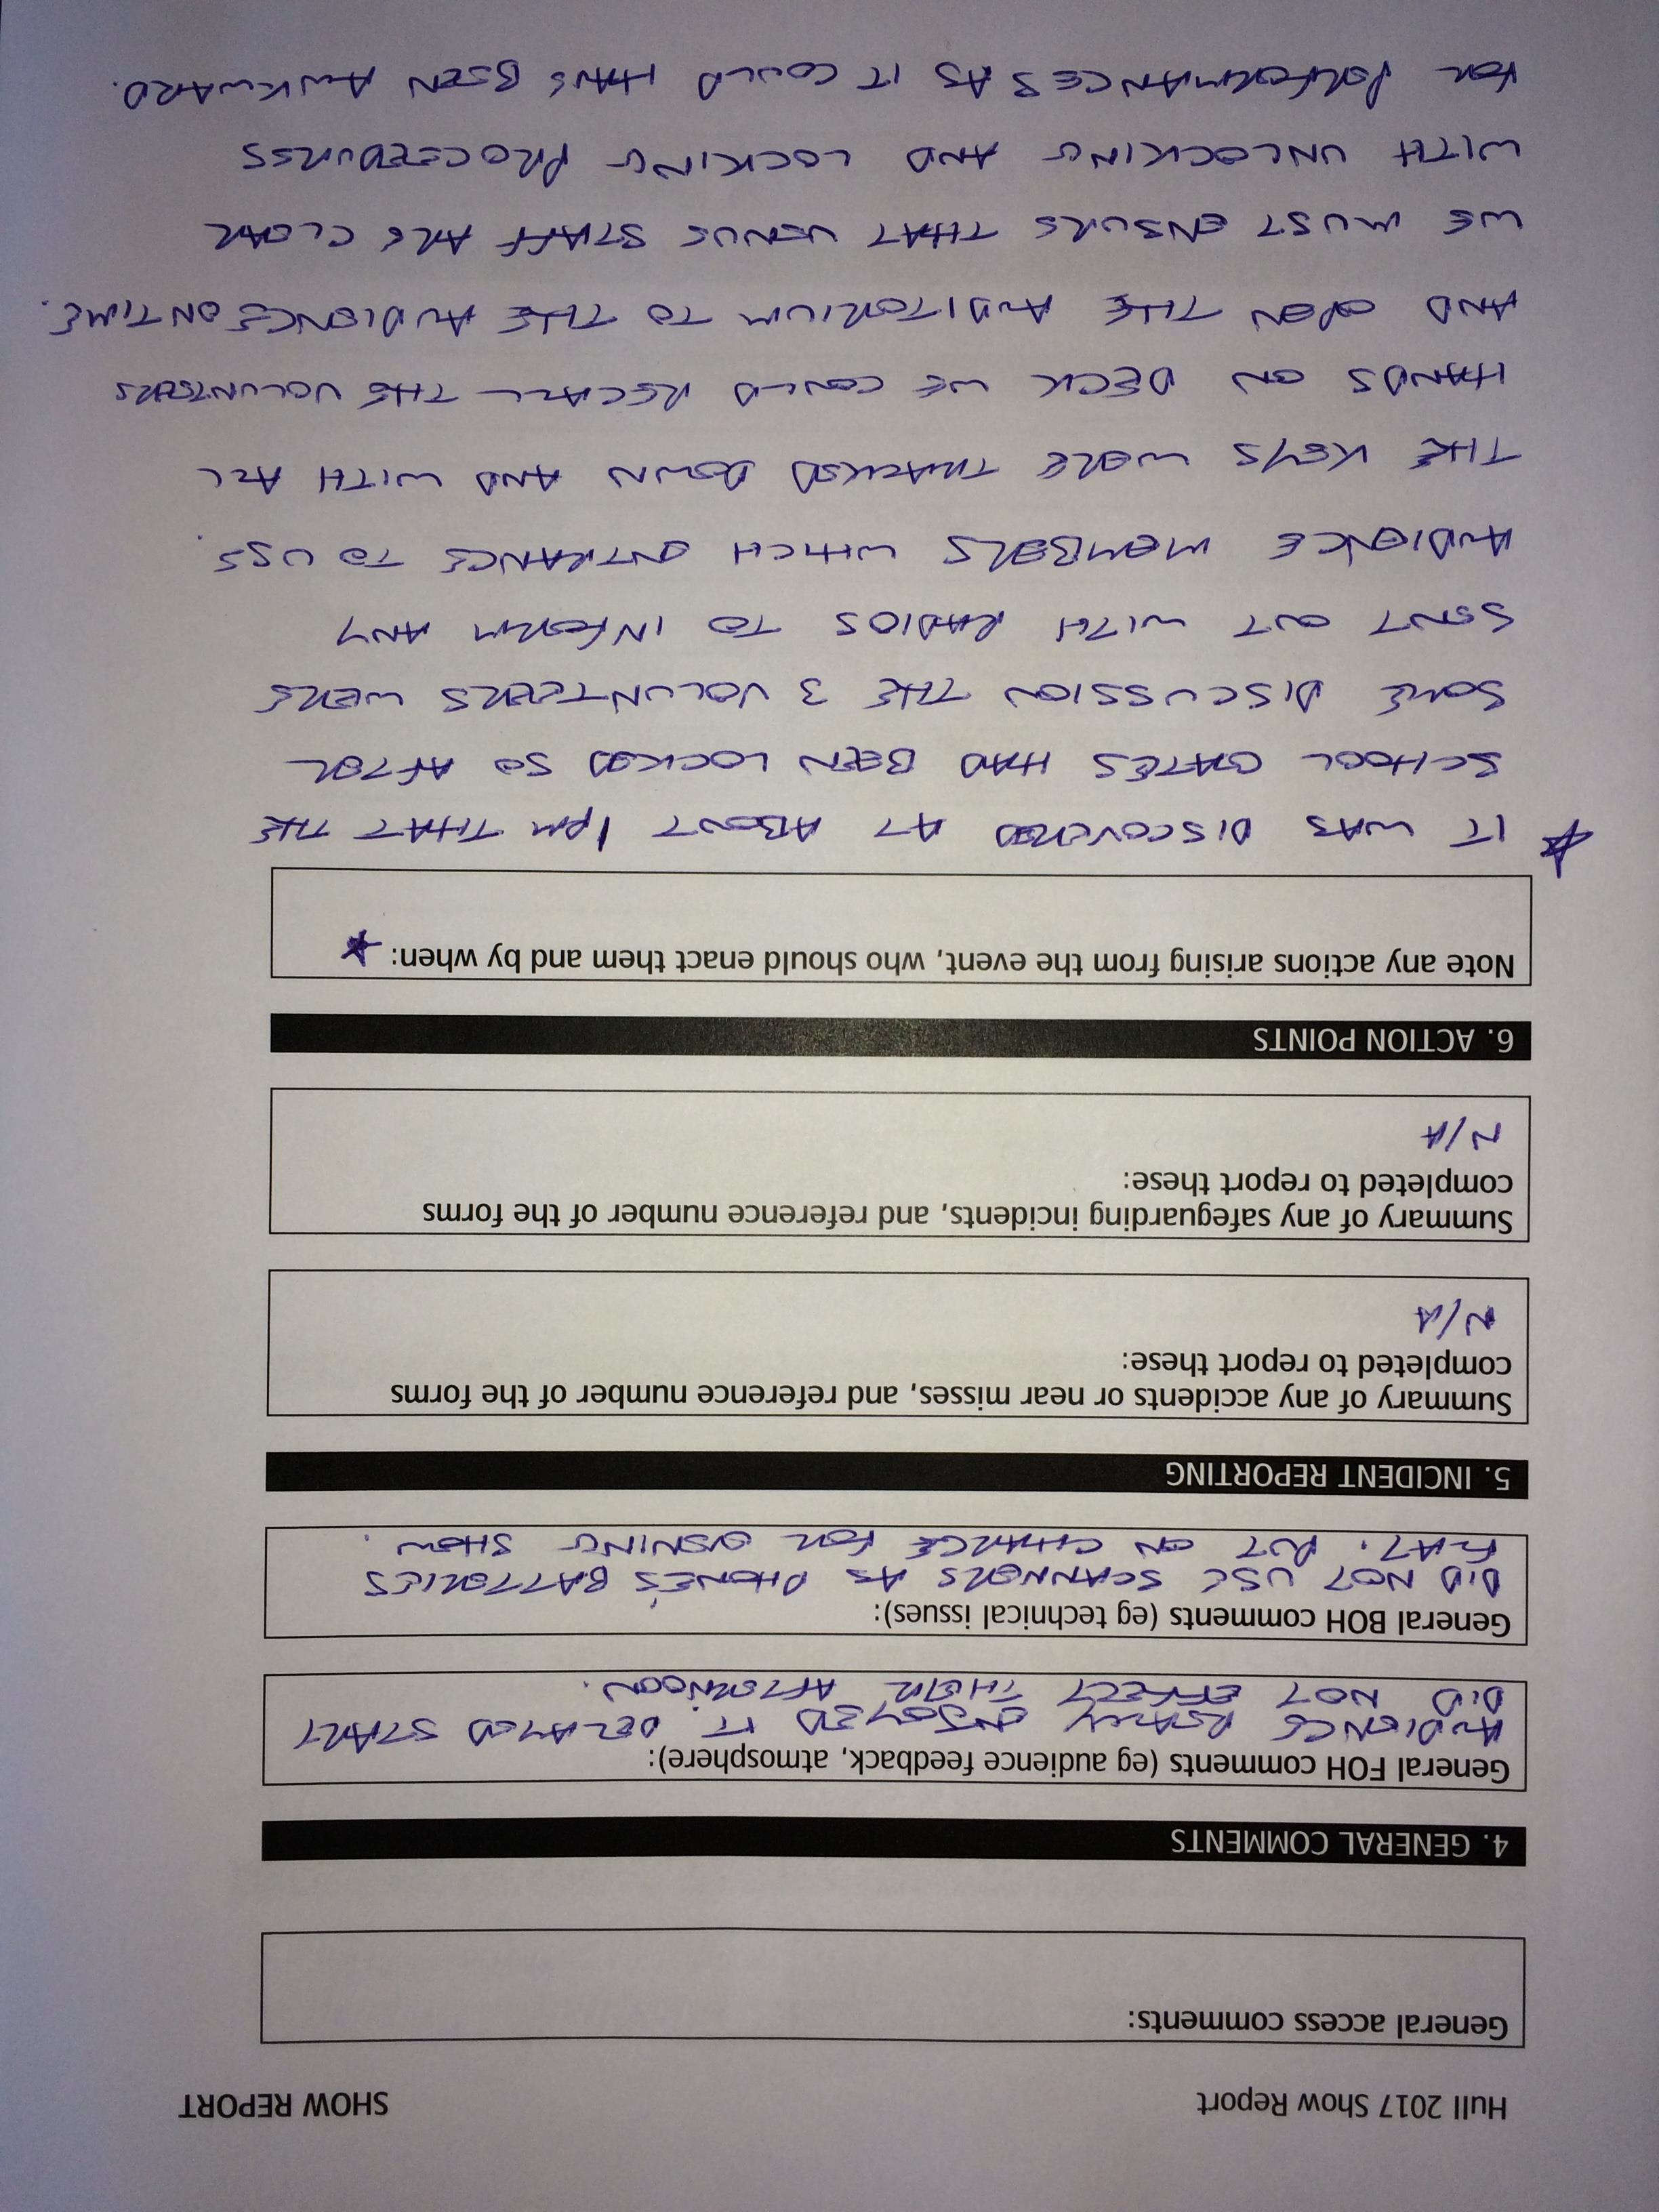 Hull 2017 Show Report SHOW REPORT
General access comments:
4. GENERAL COMMENTS
General FOH comments (eg audience feedback, atmosphere):
AUDIENCE REALLY ENJOYED IT. DELAYED START
DID NOT EFFECT THEIR AFTERNOON.
General BOH comments (eg technical issues):
DID NOT USE SCANNERS AS PHONE'S BATTERIES
FLAT. PUT ON CHARGE FOR EVENING SHOW.
5. INCIDENT REPORTING
Summary of any accidents or near misses, and reference number of the forms
completed to report these:
N/A
Summary of any safeguarding incidents, and reference number of the forms
completed to report these:
N/A
6. ACTION POINTS
Note any actions arising from the event, who should enact them and by when: *
* IT WAS DISCOVERED AT ABOUT 1pm THAT THE
SCHOOL GATES HAD BEEN LOCKED SO AFTER
SOME DISCUSSION THE 3 VOLUNTEERS WERE
SENT OUT WITH RADIOS TO INFORM ANY
AUDIENCE MEMBERS WHICH ENTRANCE TO USE.
THE KEYS WERE TRACKED DOWN AND WITH ALL
HANDS ON DECK WE COULD RECALL THE VOLUNTEERS
AND OPEN THE AUDITORIUM TO THE AUDIENCE ON TIME.
WE MUST ENSURE THAT VENUE STAFF ARE CLEAR
WITH UNLOCKING AND LOCKING PROCEEDURES
FOR PERFORMANCES AS IT COULD HAVE BEEN AWKWARD.